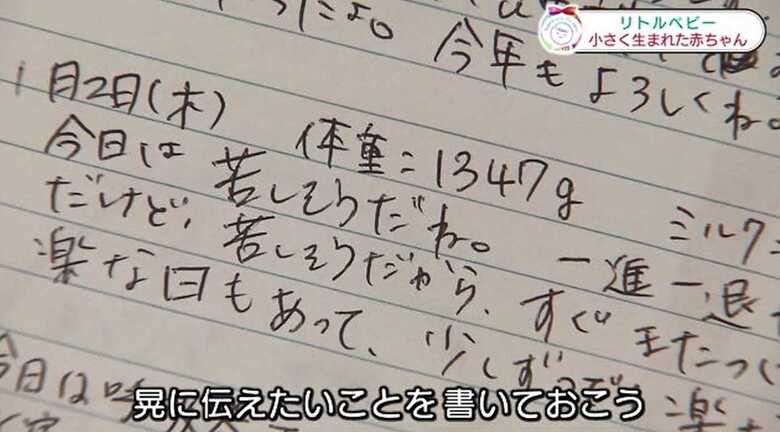 リトルベビー
小さく生まれた赤ちゃん
だよ。 今年もよろしくね。
1月2日(木) 体重:1347g ミルク
今日は苦しそうだね。 一進一退
だけど、苦しそうだから、すぐ
楽な日もあって、少しずつ
今日は
晃に伝えたいことを 書いておこう